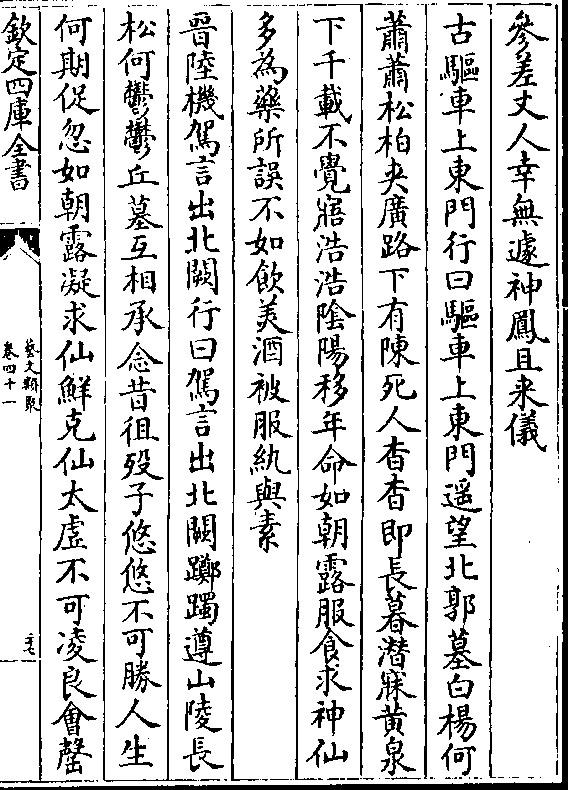 參差丈人幸無遽神鳳且来儀
古驅車上東門行曰驅車上東門遥望北郭墓白楊何
蕭蕭松柏夾廣路下有陳死人杳杳即長暮潜寐黄泉
下千載不覺寤浩浩陰陽移年命如朝露服食求神仙
多為藥所誤不如飲美酒被服紈與素
晉陸機駕言出北闕行曰駕言出北闕躑躅遵山陵長
松何鬱鬱丘墓互相承念昔徂歿子悠悠不可勝人生
何期促忽如朝露凝求仙鮮克仙太虚不可凌良會罄
欽定四庫全書
藝文類聚
卷四十一